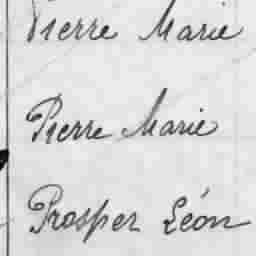 Pierre Marie
Pierre Marie
Prosper Léon